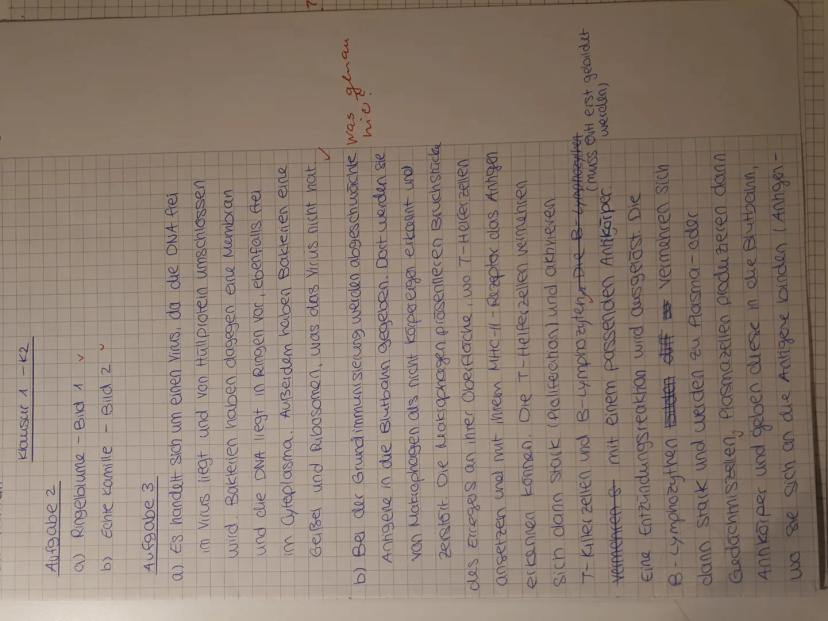 Klausur 1 - K2
Aufgabe 2
a) Ringelblume - Bild 1 ✓
b) Echte Kamille - Bild 2 ✓
Aufgabe 3
a) Es handelt sich um einen Virus, da die DNA frei
im Virus liegt und von Hüllprotein umschlossen
wird. Bakterien haben dagegen eine Membran
und die DNA liegt in Ringen vor, ebenfalls frei
im Cytoplasma. Außerdem haben Bakterien eine
Geißel und Ribosomen, was das Virus nicht hat. ✓
b) Bei der Grundimmunisierung werden abgeschwächte was genau
hie?
Antigene in die Blutbahn gegeben. Dort werden sie
von Makrophagen als nicht körpereigen erkannt und
zerstört. Die Makrophagen präsentieren Bruchstücke
des Erregers an ihrer Oberfläche, wo T-Helferzellen
ansetzen und mit ihrem MHC-II-Rezeptor das Antigen
erkennen können. Die T-Helferzellen vermehren
sich dann stark (Proliferation) und aktivieren
T-Killerzellen und B-Lymphozyten. Die B-Lymphozyten
(muss evtl erst gebildet
werden)
vermehren s mit einem passenden Antikörper.
Eine Entzündungsreaktion wird ausgelöst. Die
B-Lymphozythen vermehren sich
dann stark und werden zu Plasma- oder
Gedächtniszellen. Plasmazellen produzieren dann
Antikörper und geben diese in die Blutbahn,
wo sie sich an die Antigene binden (Antigen-